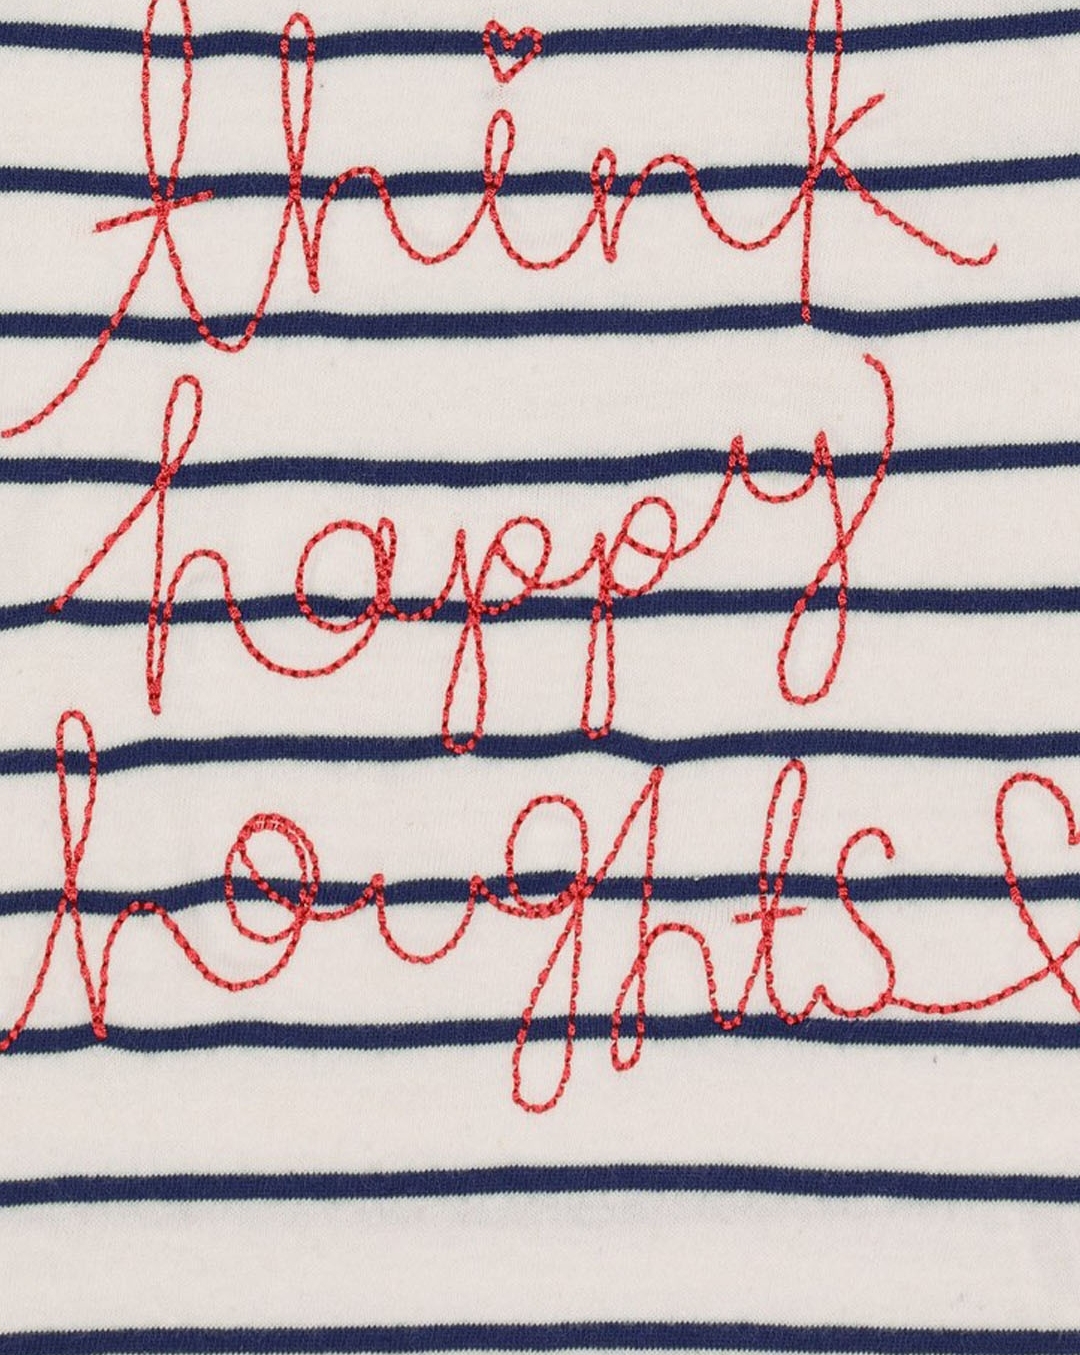 think
happy
houghts